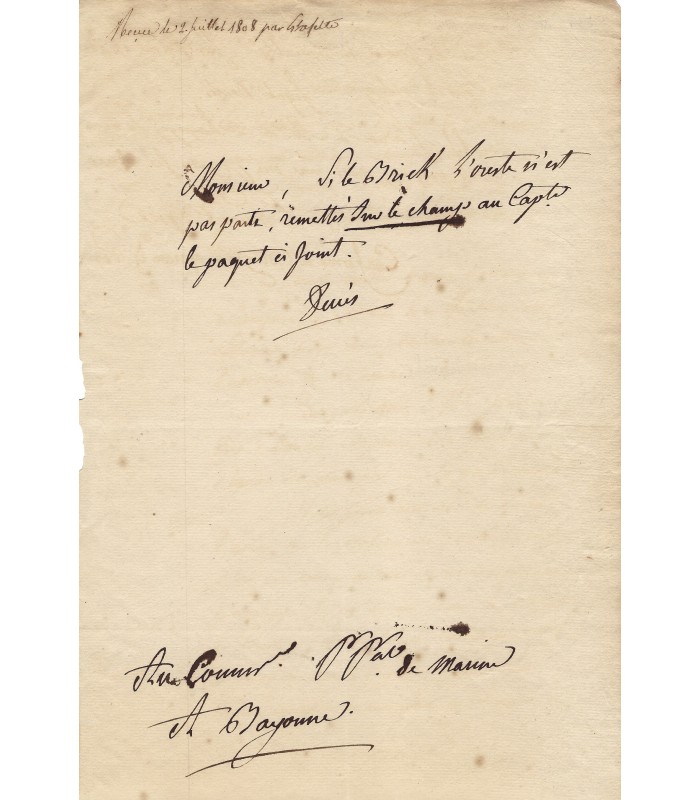 Reçue le 2 juillet 1808 par Estafette
Monsieur, Si le Brick l'oreste n'est
pas parti, remettés Sur le champ au Capte.
le paquet ci Joint.
Decrès
Au Commre. Ppal. de Marine
A Bayonne.